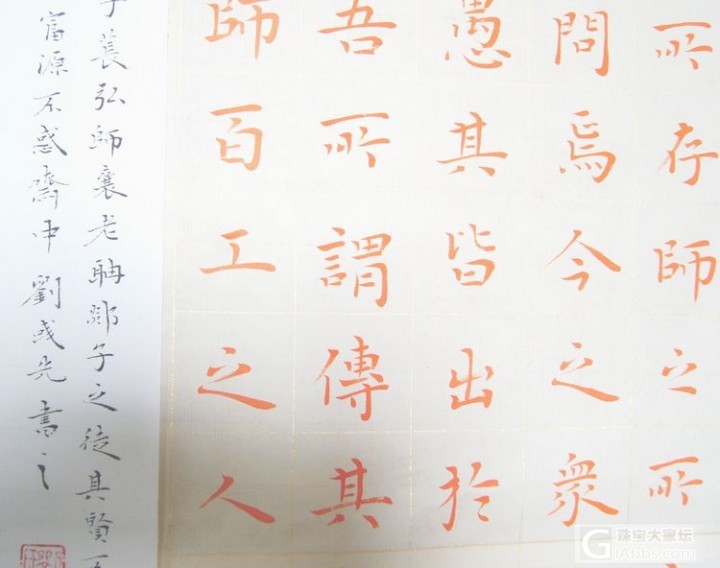 所存師之所
問焉今之衆
愚其皆出於
吾所謂傳其
師百工之人
子萇弘師襄老聃郯子之徒其賢不
富源不惑齋中劉先書之
珠宝大家坛
GiAbbs.com